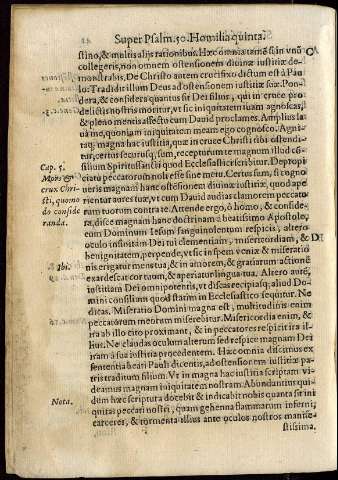 Super Psalm. 50. Homilia quinta.
stino, & multis alijs rationibus. Hæc omnia tamẽ si in vnũ
collegeris, non omnem ostensionem diuinæ iustitiæ de-
monstrabis. De Christo antem crucifixo dictum est à Pau
lo: Tradidit illum Deus ad ostensionem iustitiæ suæ. Pon-
dera, & considera quantus sit Dei filius, qui in cruce pro
delictis nostris moritur, vt sic iniquitatem tuam agnoscas,
& pleno mentis affectu cum Dauid proclames. Amplius la
ua me, quoniam iniquitatem meam ego cognosco. Agni-
taq; magna hac iustitia, quæ in cruce Christi tibi ostendi-
tur, certus securusq; sum, recepturum te magnum illud cõ-
silium Spiritus sancti quod Ecclesiastici scribitur. De propi-
Cap. 5.
ciatu peccatorum noli esse sine metu. Certus sum, si cogno
Mors &
ueris magnam hanc ostẽsionem diuinæ iustitiæ, quod ape
crux Chri-
rientur aures tuæ, vt cum Dauid audias clamorem peccato
sti, quomo
rum tuorum contra te. Attende ergo, ô homo, & conside-
do conside
ra, disce magnam hanc doctrinam à beatissimo Apostolo,
randa.
cum Dominum Iesum sanguinolentum respicis, altero
oculo inspitiam Dei tui clementiam, misericordiam, & 
benignitatem, perpende, vt sic in spem veniæ & miseratio
Ibi.
nis erigatur mens tua, & in amorem, & gratiarum actionẽ
exardescat cor tuum, & aperiatur lingua tua. Altero autẽ,
iustitiam Dei omnipotentis, vt discas recipiasq; aliud Do-
mini consilium quod statim in Ecclesiastico sequitur. Ne
dicas. Miseratio Domini magna est, multitudinis enim
peccatorum meorum miserebitur. Misericordia enim, &
ira ab illo cito proximant, & in peccatores respicit ira il-
lius. Ne claudas oculum alterum sed respice magnam Dei
iram à sua iustitia procedentem. Hæc omnia discimus ex
sententia beati Pauli dicentis, ad ostensionem iustitiæ pa-
tris traditum filium. Vt in magna hac iustitia scriptam vi-
deamus magnam iniquitatem nostram. Abundantur qui-
Nota.
dum hæc scriptura docebit & indicabit nobis quanta sit ini
quitas peccati nostri, quam gehenna flammarum inferni,
carceret, & tormenta illius ante oculos nostros manife-
stissima.